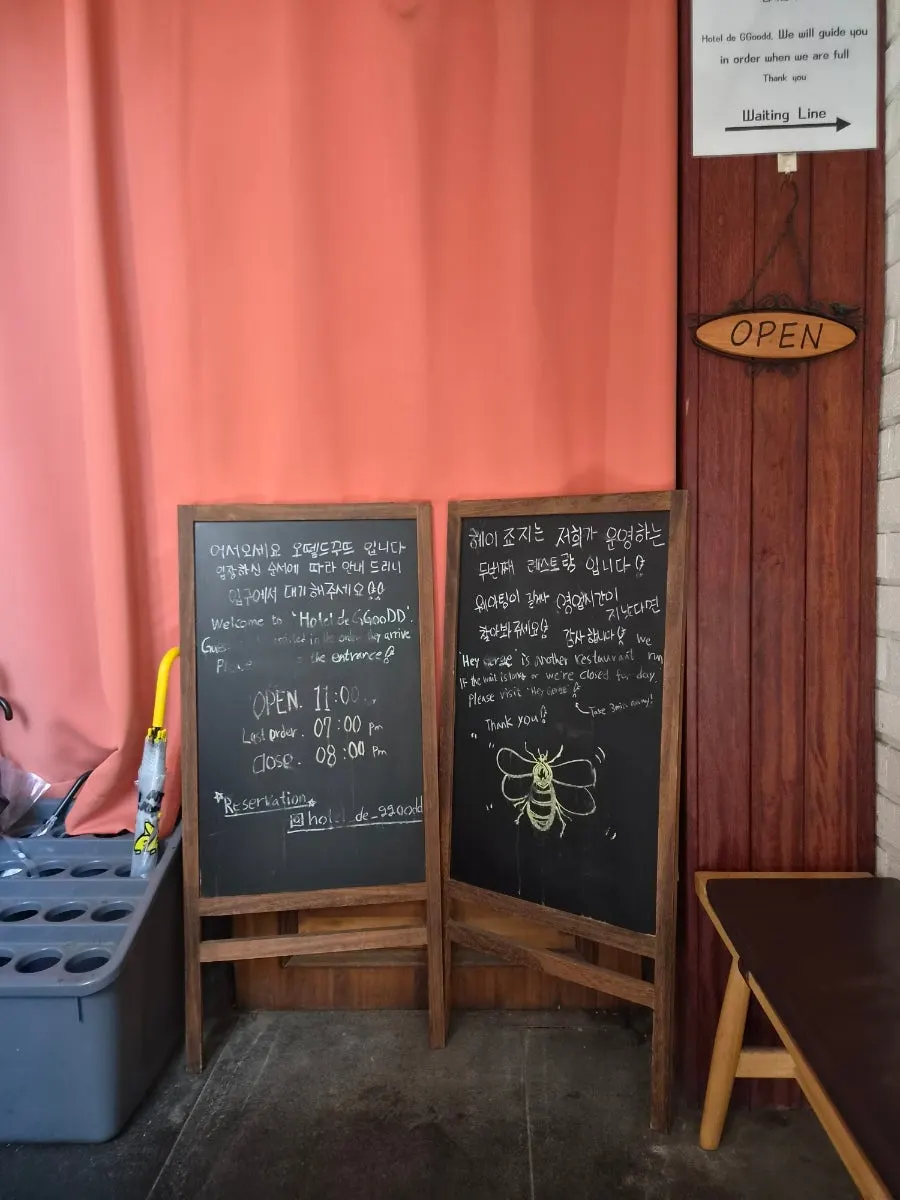 Hotel de GGoodd. We will guide you
in order when we are full
Thank you
Waiting Line
OPEN
어서오세요 오뗄드꾸뜨 입니다
입장하신 순서에 따라 안내 드리니
입구에서 대기해주세요
Welcome to 'Hotel de GGooDD'.
in the order they arrive
the entrance
OPEN. 11:00
Last order. 07:00 pm
Close. 08:00 pm
Reservation
hotel_de_ggoodd
헤이죠지는 저희가 운영하는
두번째 레스토랑 입니다
웨이팅이 길거나 영업시간이
지났다면
찾아봐주세요 감사합니다
'Hey George' is another restaurant we run
If the wait is long or we're closed for day,
Please visit 'Hey George'
Take 3min away!
Thank you